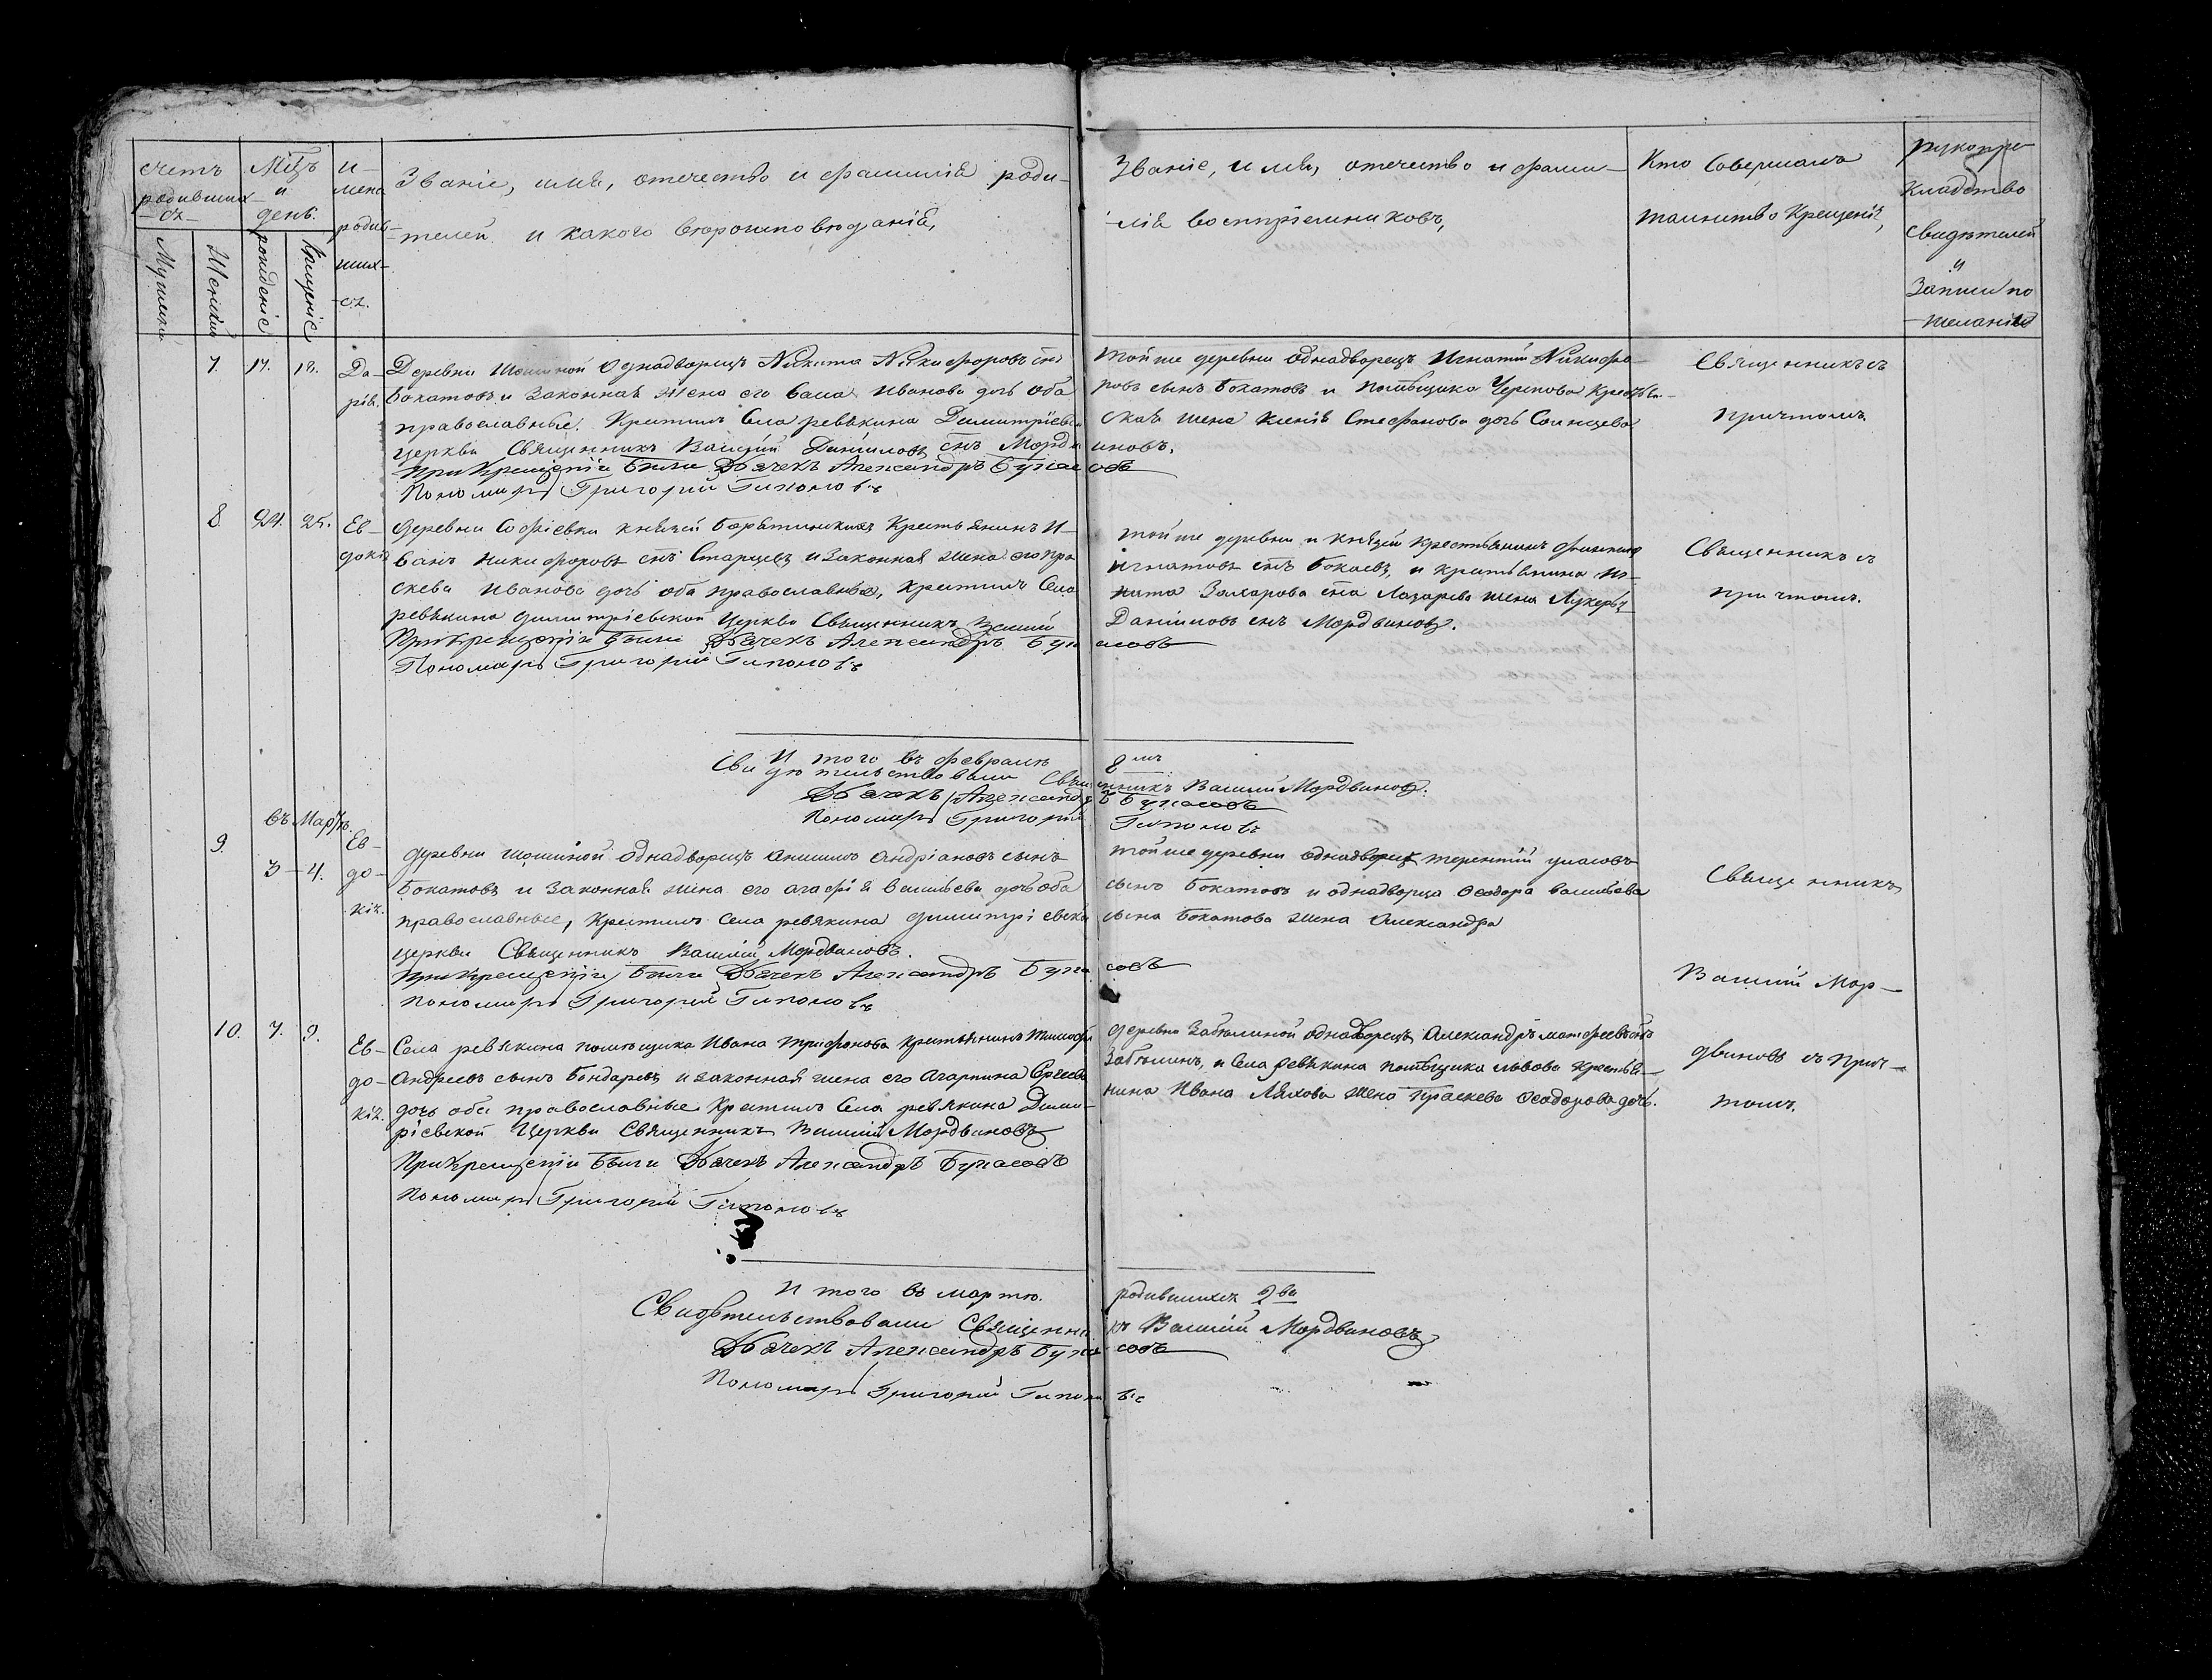 Счетъ
родивших-
ся
Мужеска
Женска
Мѣцъ
и
день.
рожденіе
Крещеніе
И-
мена
родив-
ших-
ся.
Званіе, имя, отечество и фамилія роди-
телей и какого вѣроисповѣданія,
Званіе, имя, отечество и фами-
лія воспріемниковъ,
Кто Совершалъ
таинство Крещенія,
рукопри-
кладство
свидѣтелей
и
Записи по
желанію
7. 17. 18.
Да-
рія.
Деревни однодворецъ Никита Никифоровъ снъ
Бокатовъ и Законная Жена его Иванова дочь оба
православные. Крестилъ Села ревякина Димитріевск
церкви Священникъ Василій Даниловъ снъ Мордв
При крещеніи были Дьячекъ Александръ Бу
Пономарь Григорій
той же деревни однодворецъ Игнатій Никифо-
ровъ сынъ Бокатовъ и помѣщика Крестья-
ская жена Ксенія Стефанова дочь
иновъ.
овъ
Священникъ съ
Причтомъ.
8. 24. 25.
Ев-
докія
деревни Софіевки князей Барятинскихъ Крестьянинъ И-
ванъ Никифоровъ снъ Старцевъ и Законная жена его пра
скева Иванова дочь оба православные, крестилъ Села
ревякина димитріевской Церкви Священникъ Василій
При крещеніи были Дьячекъ Александръ Бу
Пономарь Григорій
той же деревни и Князей крестьянинъ
Игнатовъ снъ Бокаевъ, и крестьянина
Захарова сна Лазарева жена Лукерья
Даниловъ снъ Мордвиновъ.
Священникъ съ
причтомъ.
И того въ февралѣ 8мъ
Свидѣтельствовали Священникъ Василій Мордвиновъ.
Дьячекъ Александръ
Пономарь Григорій
въ Мартѣ.
9. 3-4.
Ев-
до-
кія.
деревни однодворецъ Анисимъ Андріановъ сынъ
Бокатовъ и Законная жена его Агафія Васильева дочь оба
православные, Крестилъ Села ревякина димитріевск
церкви Священникъ Василій Мордвиновъ.
При крещеніи были Дьячекъ Александръ Бу
Пономарь Григорій
той же деревни однодворецъ терентій
сынъ Бокатовъ и однодворца Ѳеодора Васильева
сына Бокатова жена Александра
совъ
Священникъ
Василій Мор-
10. 7. 9.
Ев-
до-
кія.
Села ревякина помѣщика Ивана Трифонова крестьянинъ Тимофѣй
Андреевъ сынъ Бондаревъ и законная жена его Агрипина Сергѣева
дочь оба православные Крестилъ Села ревякина Дими-
ріевской Церкви Священникъ Василій Мордвиновъ
При крещеніи были Дьячекъ Александръ
Пономарь Григорій
деревни Забѣлиной однодворецъ Александръ матфеевъ снъ
Забѣлинъ, и Села ревякина помѣщика львова Крестья-
нина Ивана Ляхова жена Праскева Ѳеодорова дочь.
двиновъ съ Прич-
томъ.
И того въ мартѣ. родившихся 2ва
Свидѣтельствовали Священникъ Василій Мордвиновъ
Дьячекъ Александръ
Пономарь Григорій